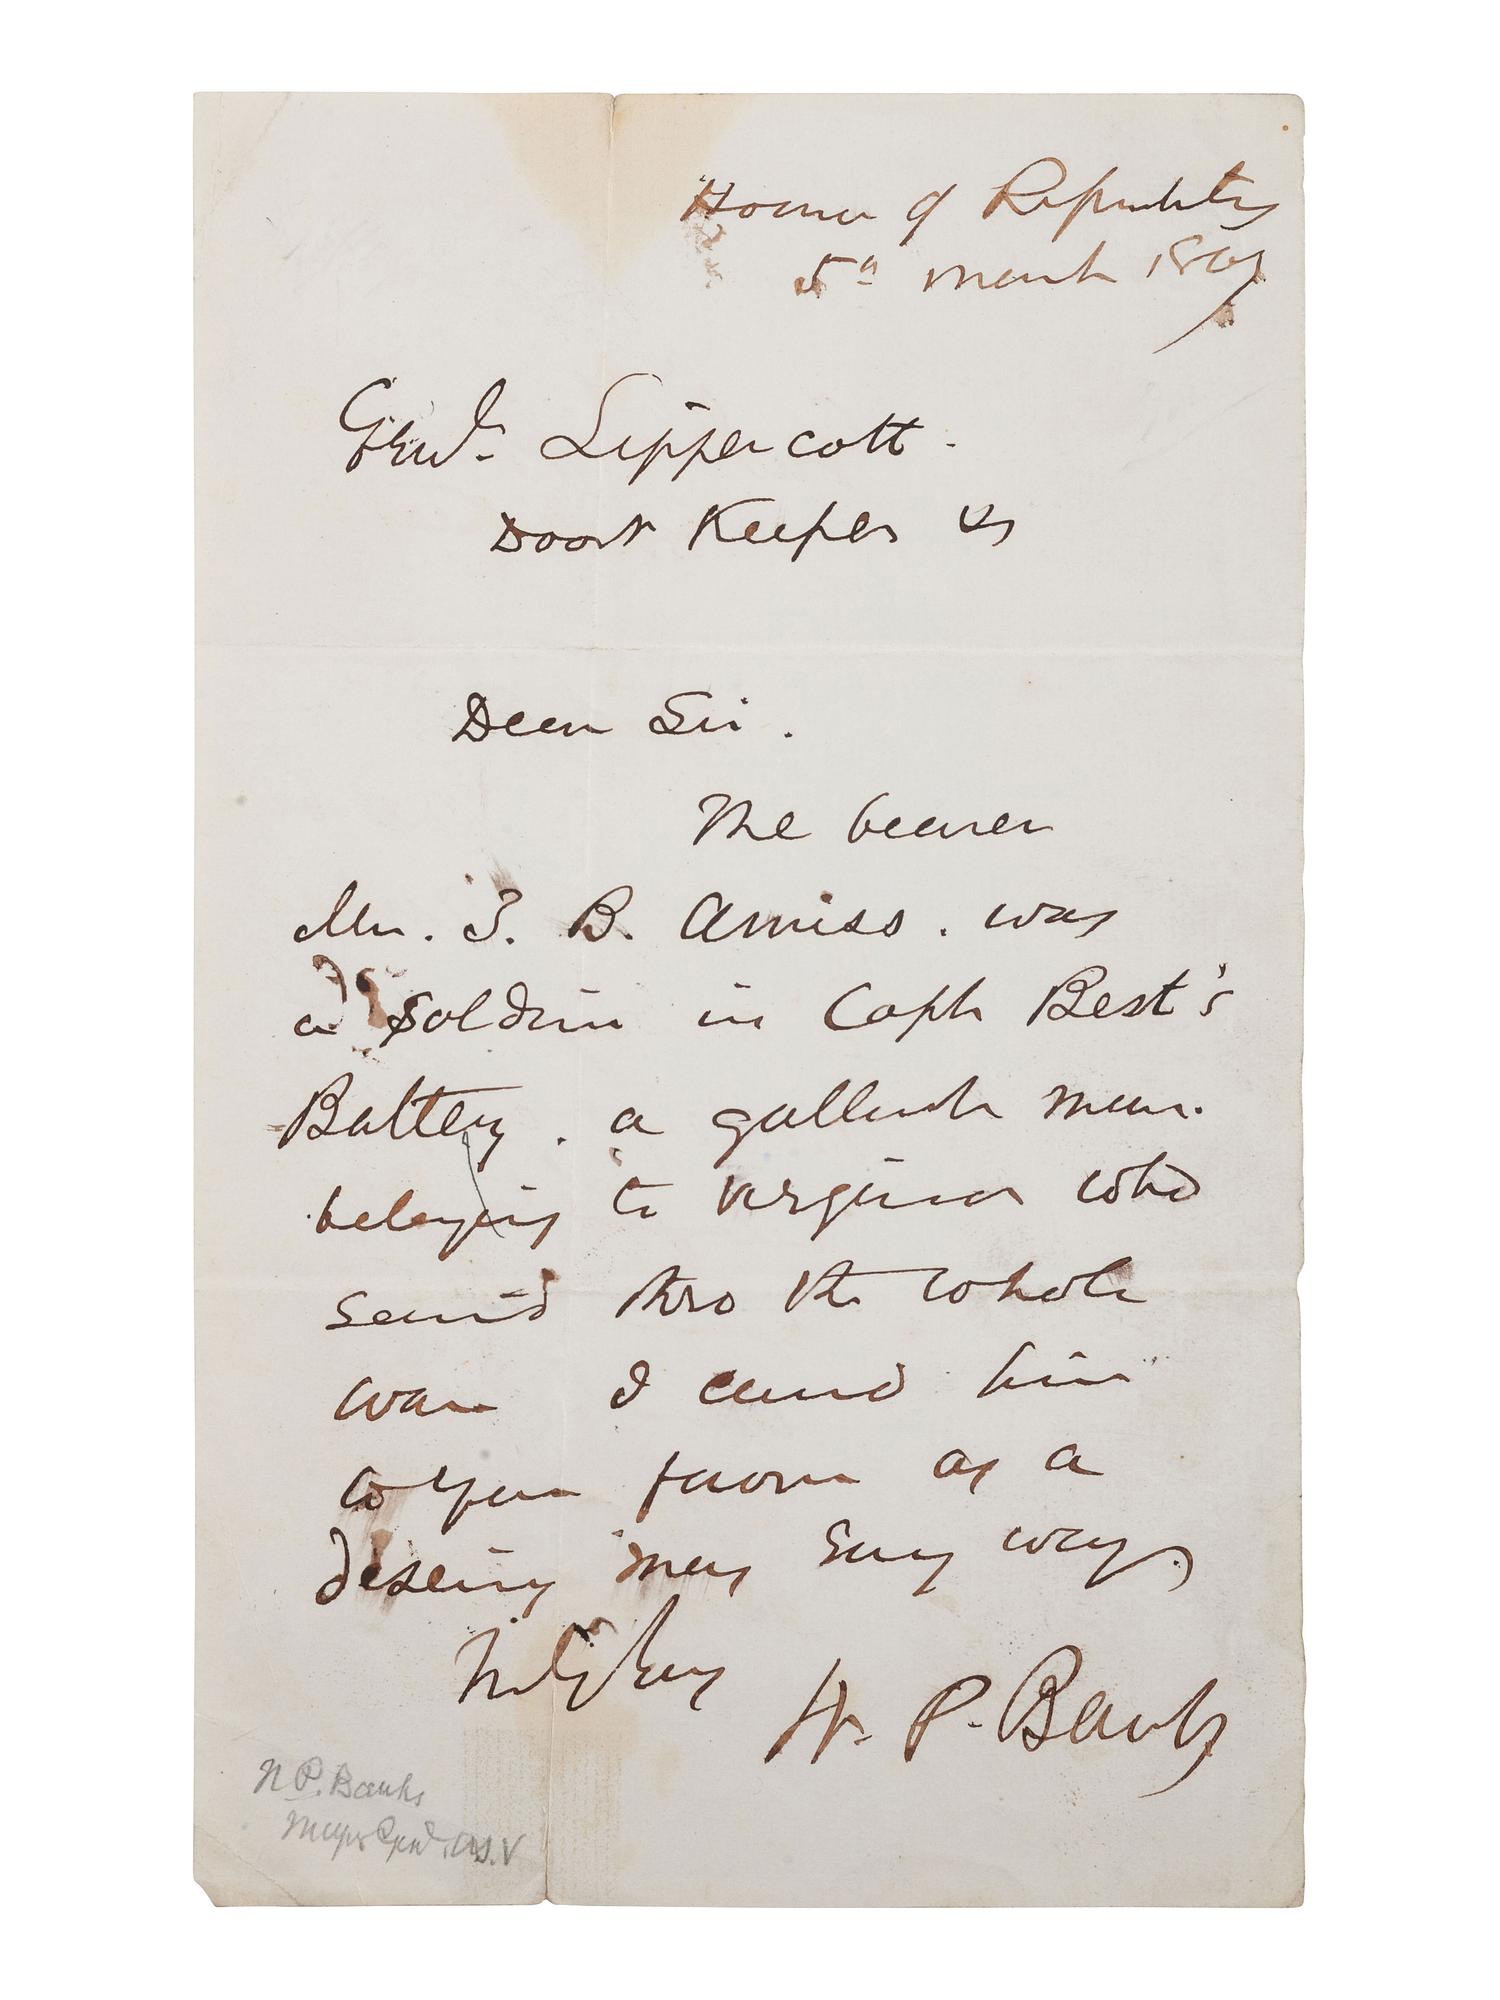 House of Reprentatives
5th March 1867
Genl. Lippercott.
Door Keeper &c
Dear Sir.
The bearer
Mr. J. B. Amiss. was
a Soldier in Capt Best's
Battery. a gallant man.
belonging to Virginia who
served thro the whole
war I comd him
to your favor as a
deserving man every way,
N. P. Banks
N P. Banks
Major Genl. U.S.V